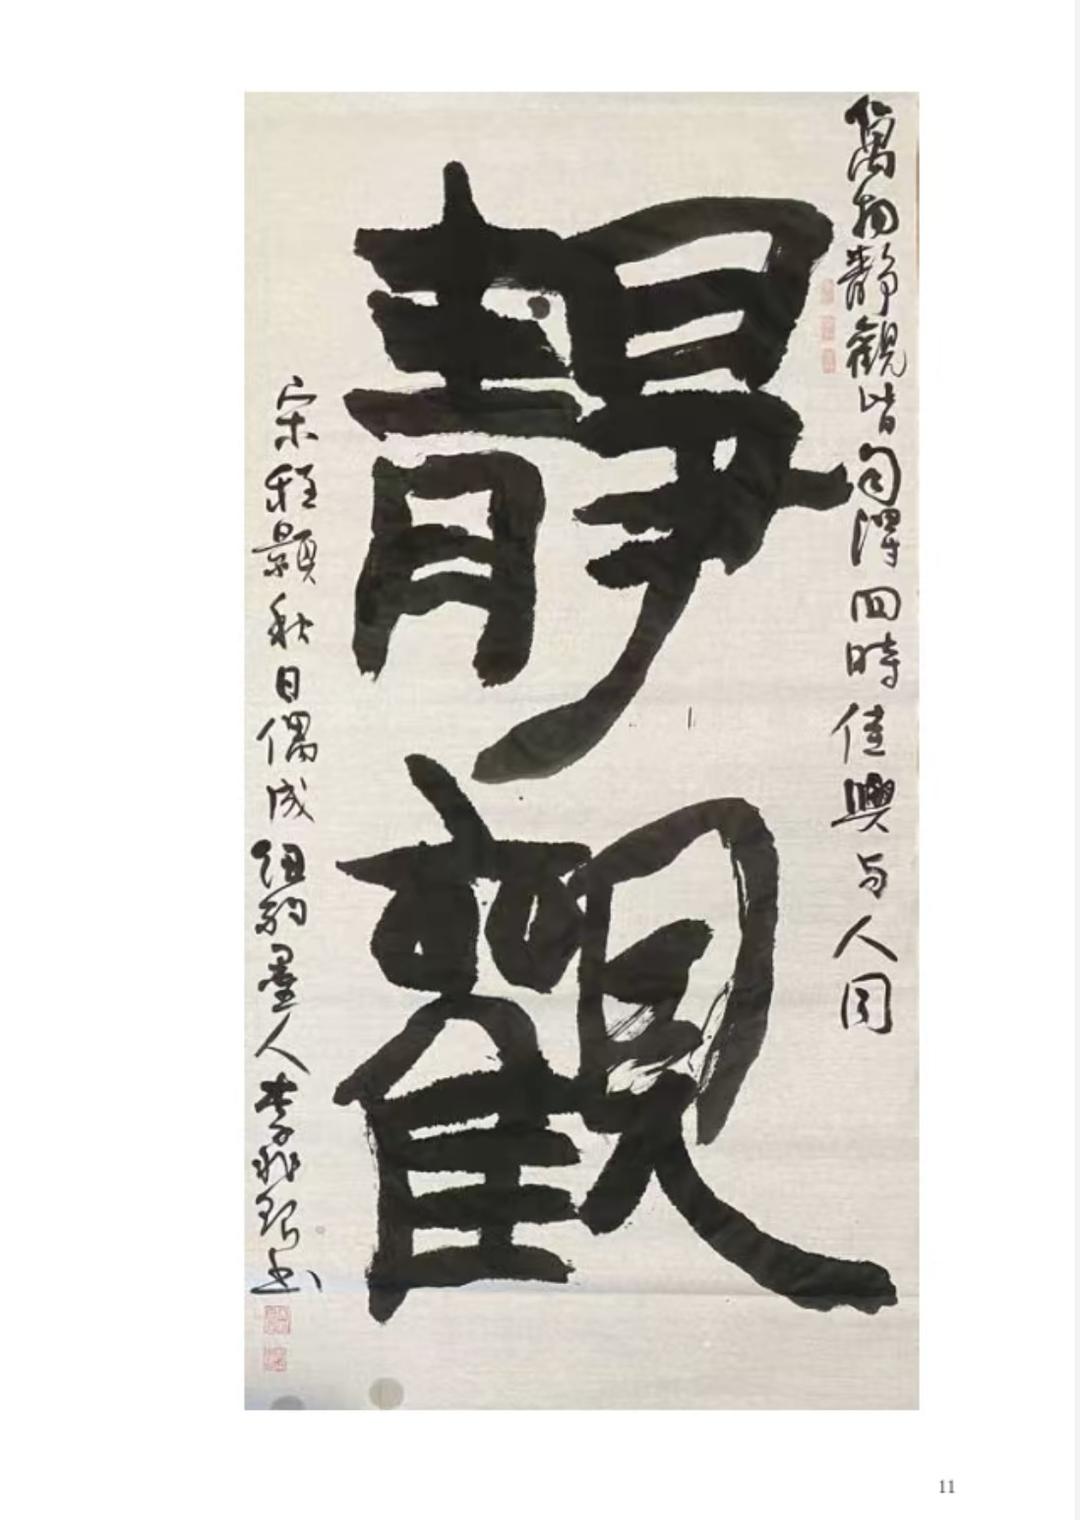 萬物靜觀皆自得四時佳興与人同
靜觀
宋程顥秋日偶成紐約墨人李兆银书
11